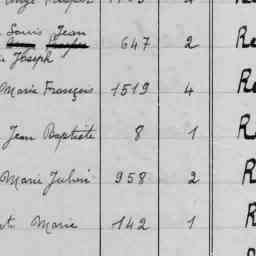 Louis Jean 647 2 Re
Joseph
Marie François 1519 4 Re
Jean Baptiste 8 1 R
Marie Julien 958 2 R
Marie 142 1 R